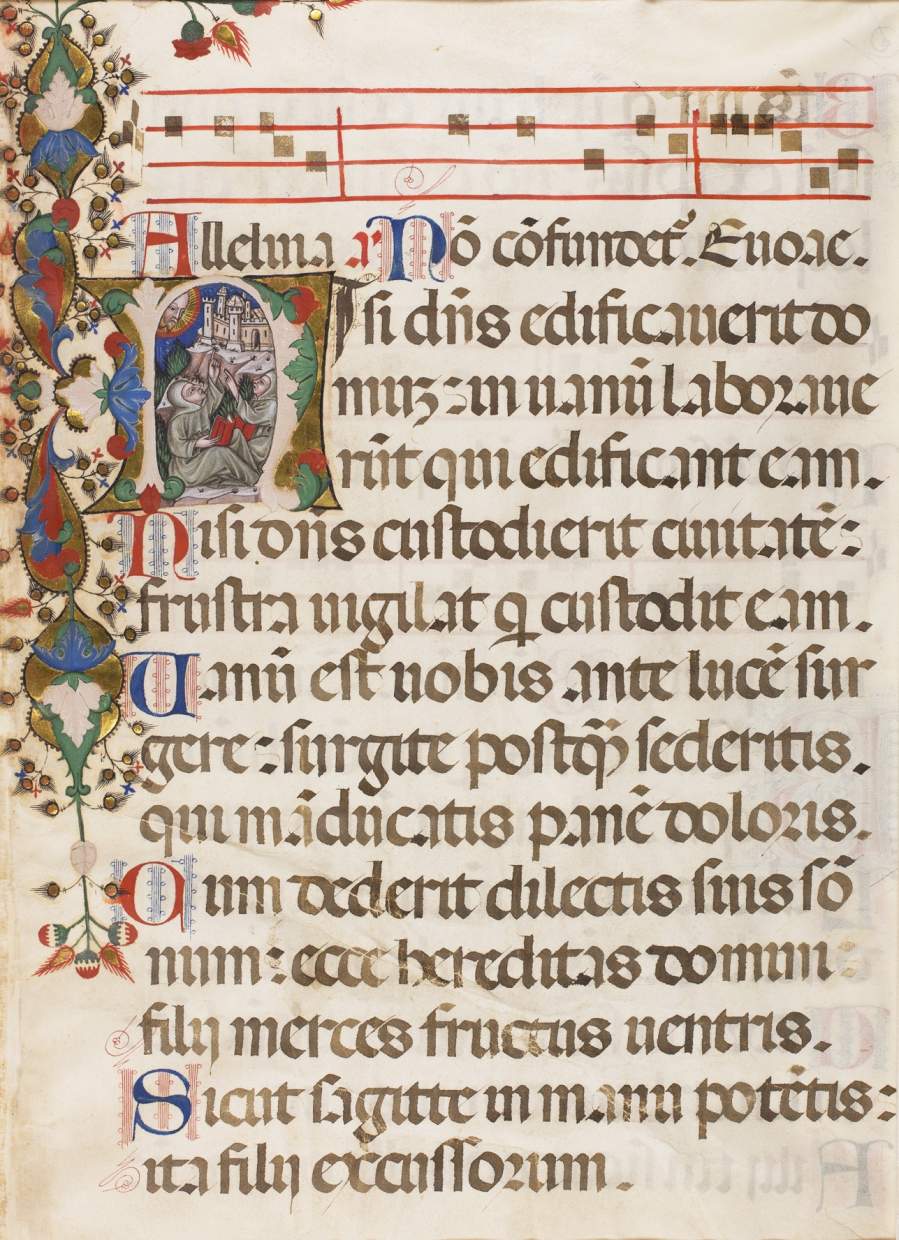 Alleluia a Nō cōfundet᷑. Euoae.
Nisi dn̄s edificauerit do
muꝫ: in uanū laboraue
rūt qui edificant eam.
Nisi dn̄s custodierit ciuitatē:
frustra uigilat q̲ custodit eam.
Uanū est uobis ante lucē sur
gere: surgite postqȝ̄ sederitis.
qui māducatis panē doloris.
Cum dederit dilectis suis sō
num: ecce hereditas domini
filij merces fructus uentris.
Sicut sagitte in manu potētis:
ita filij excussorum.